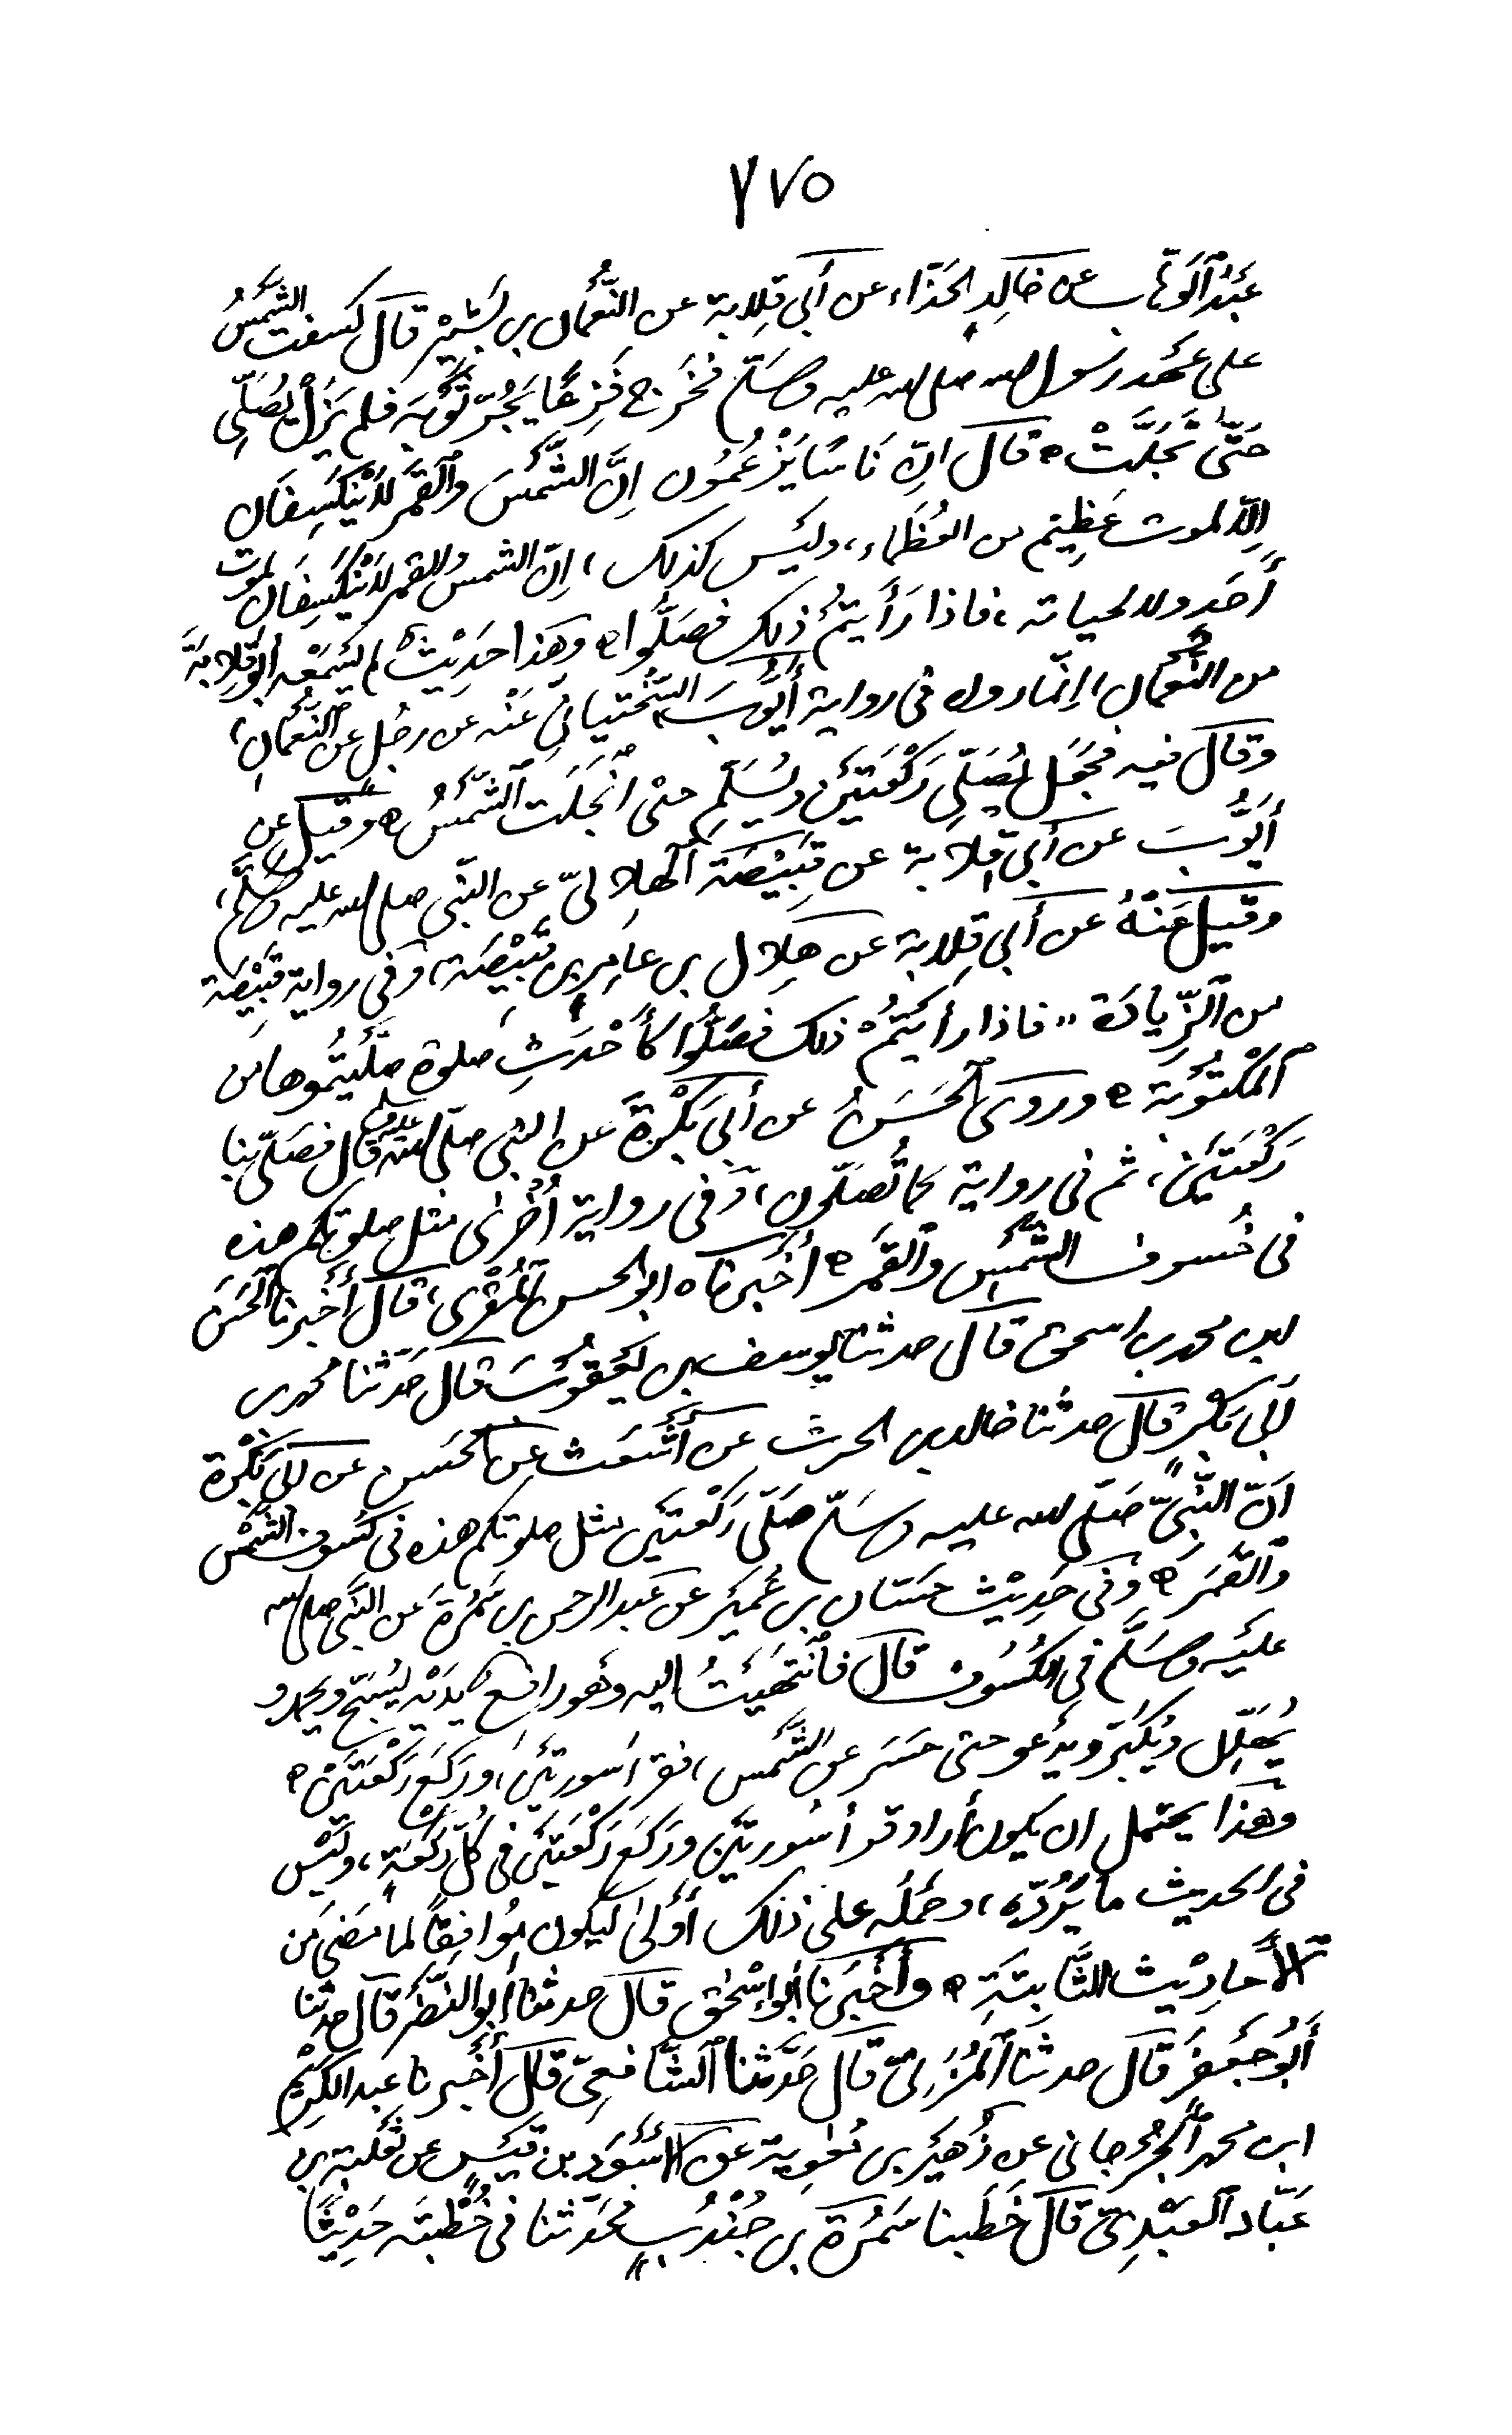 ٧٧٥
عَبْدُ ٱلْوَهَّاب عن خَالِدٍ الحَذَّاء عن أَبى قِلابة عن النُّعْمان بن بَشِيْرٍ قال كسفت الشَّمْسُ
على عَهْد رسول الله صلى الله عليه وسَلّم فخَرَج فَزِعًا يَجُرّ ثَوْبَه فلم يَزَلْ يُصَلِّى
حَتّى تَجَلَّتْ ٥ قال اِنّ نَاسًا يَزْعُمُون اِنَّ الشَّمْسَ وَٱلْقَمَر لا يَنْكَسِفان
اِلّا لموت عَظِيْم من العُظَمَاء، وليس كذلك، اِنّ الشمس والقمر لا يَنْكَسِفان لموت
أَحَدٍ ولا لحياته، فاذا رَأَيتمُ ذلك فصَلُّوا ٥ وهَذا حَدِيْثٌ لم يَسْمَعْه ابو قِلابةَ
من النُّعْمان، اِنّما رواه فى رواية أَيُّوبَ السَّخْتيانىّ عَنْه عن رجُلٍ عن النُّعْمانِ،
وقال فيه فجَعَل يُصَلِّى رَكْعَتَيْن ويُسَلِّم حتى ٱنْجَلَت ٱلشَّمْسُ ٥ وقيل عن
أَيُّوبَ عن أَبى قِلابة عن قَبِيْصَةَ ٱلْهِلالىّ عن النَّبى صلى الله عليه وسَلَّم،
وقيل عَنْهُ عن أَبى قِلابة عن هِلال بن عَامِر بن قَبِيْصَة، وفى رواية قَبِيْصَة
من ٱلزِّيادَة "فاذا رأَيتمُ ذلك فصَلُّوا كأَحْدَثِ صلوة صَلَّيْتُموها من
ٱلْمَكْتُوْبَة ٥ وروى ٱلْحَسَنُ عن أَبى بَكْرةَ عن النبى صلى الله عليه وسلم قال فصَلّى بِنا
رَكْعَتَيْن، ثم فى رواية كما تُصَلّون، وفى رواية أُخْرى مثل صلوتكم هذه
فى خُسوف الشَّمْسِ وٱلْقَمَر ٥ أَخْبَرناه ابو الحسن ٱلْمُقْرِى، قال أَخْبرنا ٱلْحَسَن
بن محمد بن اسحق قال حدثنا يوسف بن يَعْقُوْبَ قال حَدّثنا محمد بن
أَبى بَكْرٍ قال حدثنا خالد بن الحرث عن أَشْعَث عن الحَسَن عن أَبى بَكْرة
اَنّ النَّبىّ صَلّى الله عليه وسَلّم صَلّى رَكْعتَيْن مثل صلوتكم هذه فى كسوف الشَّمْس
وٱلْقَمَر ٥ وفى حَدِيْث حَسّان بن عُمَيْر عن عبد الرحمن بن سَمُرَة عن النَّبى صلى الله
عليْه وسَلَّم فى الكُسُوْف قال فٱنْتَهَيْتُ اليه وهو رافع يَدَيْه يُسَبّح ويحمد و
يُهَلّل ويُكَبّر ويدْعو حتى حَسَر عن الشَّمس، فقرأ سُورتَيْن، ورَكَع رَكْعَتَيْن ٥
وهَذا يحتمل ان يكون أراد قرأ سُورتَيْن ورَكَع رَكْعَتَيْن فى كُلّ رَكْعَةٍ، ولَيْس
فى الحديث ما يَرُدّه، وحَمْلُه على ذلك أَوْلى ليكون مُوافِقًا لما مَضى من
الأَحادِيْث الثَّابتَةِ ٥ وأَخْبَرنا أَبو اِسْحٰق قال حدثنا أَبو النَّضْر قال حدثنا
أَبُو جَعْفَر قال حدثنا ٱلْمُزَنىّ قال حَدَّثنا ٱلشَّافعىّ قال أَخْبرنا عبد الكريْم
ابن محمد ٱلجُرْجانى عن زُهَيْر بن مُعٰوية عن الأَسْوَد بن قَيْسٍ عن ثَعْلبة بن
عَبّاد ٱلْعَبْدِىّ قال خَطَبنا سَمُرَة بن جُنْدُبٍ فحَدّثنا فى خُطْبته حَدِيْثًا